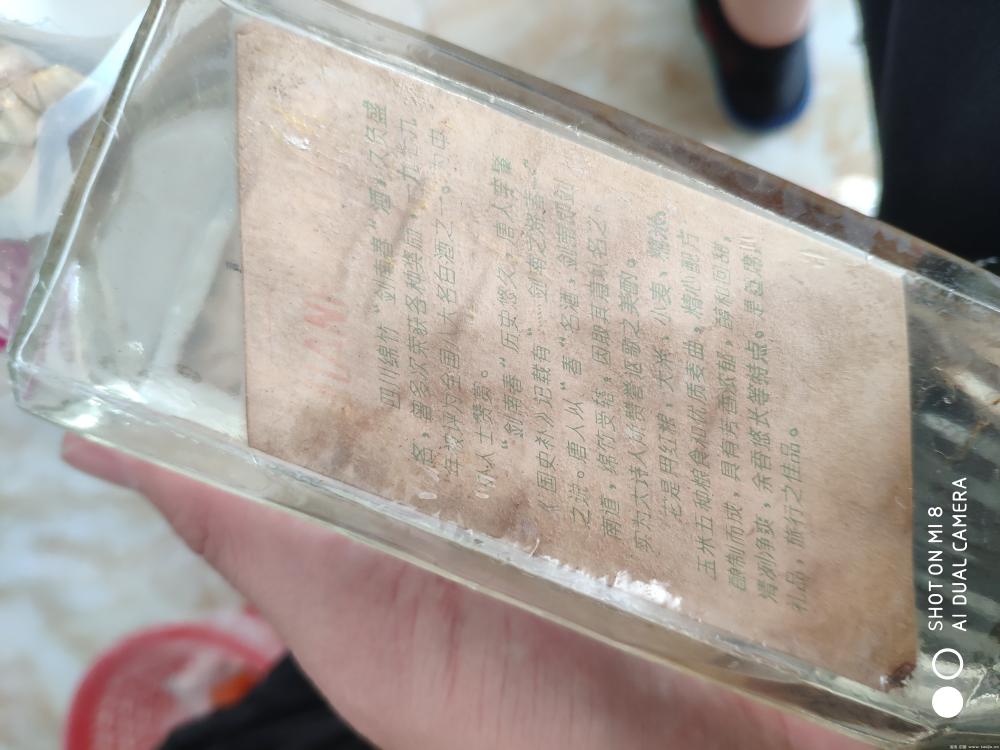 四川绵竹“剑南春”酒，久负盛
名，曾多次荣获各种奖励，一九七九
年被评为全国八大名白酒之一。为中
外人士赞赏。
“剑南春”历史悠久，唐人李肇
《国史补》记载有“……剑南之烧春…”
之说。唐人以“春”名酒，剑南即剑
南道，绵竹受辖，因取其遗名之
实为大诗人所赞誉讴歌之美酿。
它是用红粮，大米，小麦、糯米、
玉米五种粮食和优质麦曲，精心配方
酿制而成，具有芳香浓郁，醇和回甜，
清冽净爽，余香悠长等特点。是盛席、
礼品，旅行之佳品。
SHOT ON MI 8
AI DUAL CAMERA